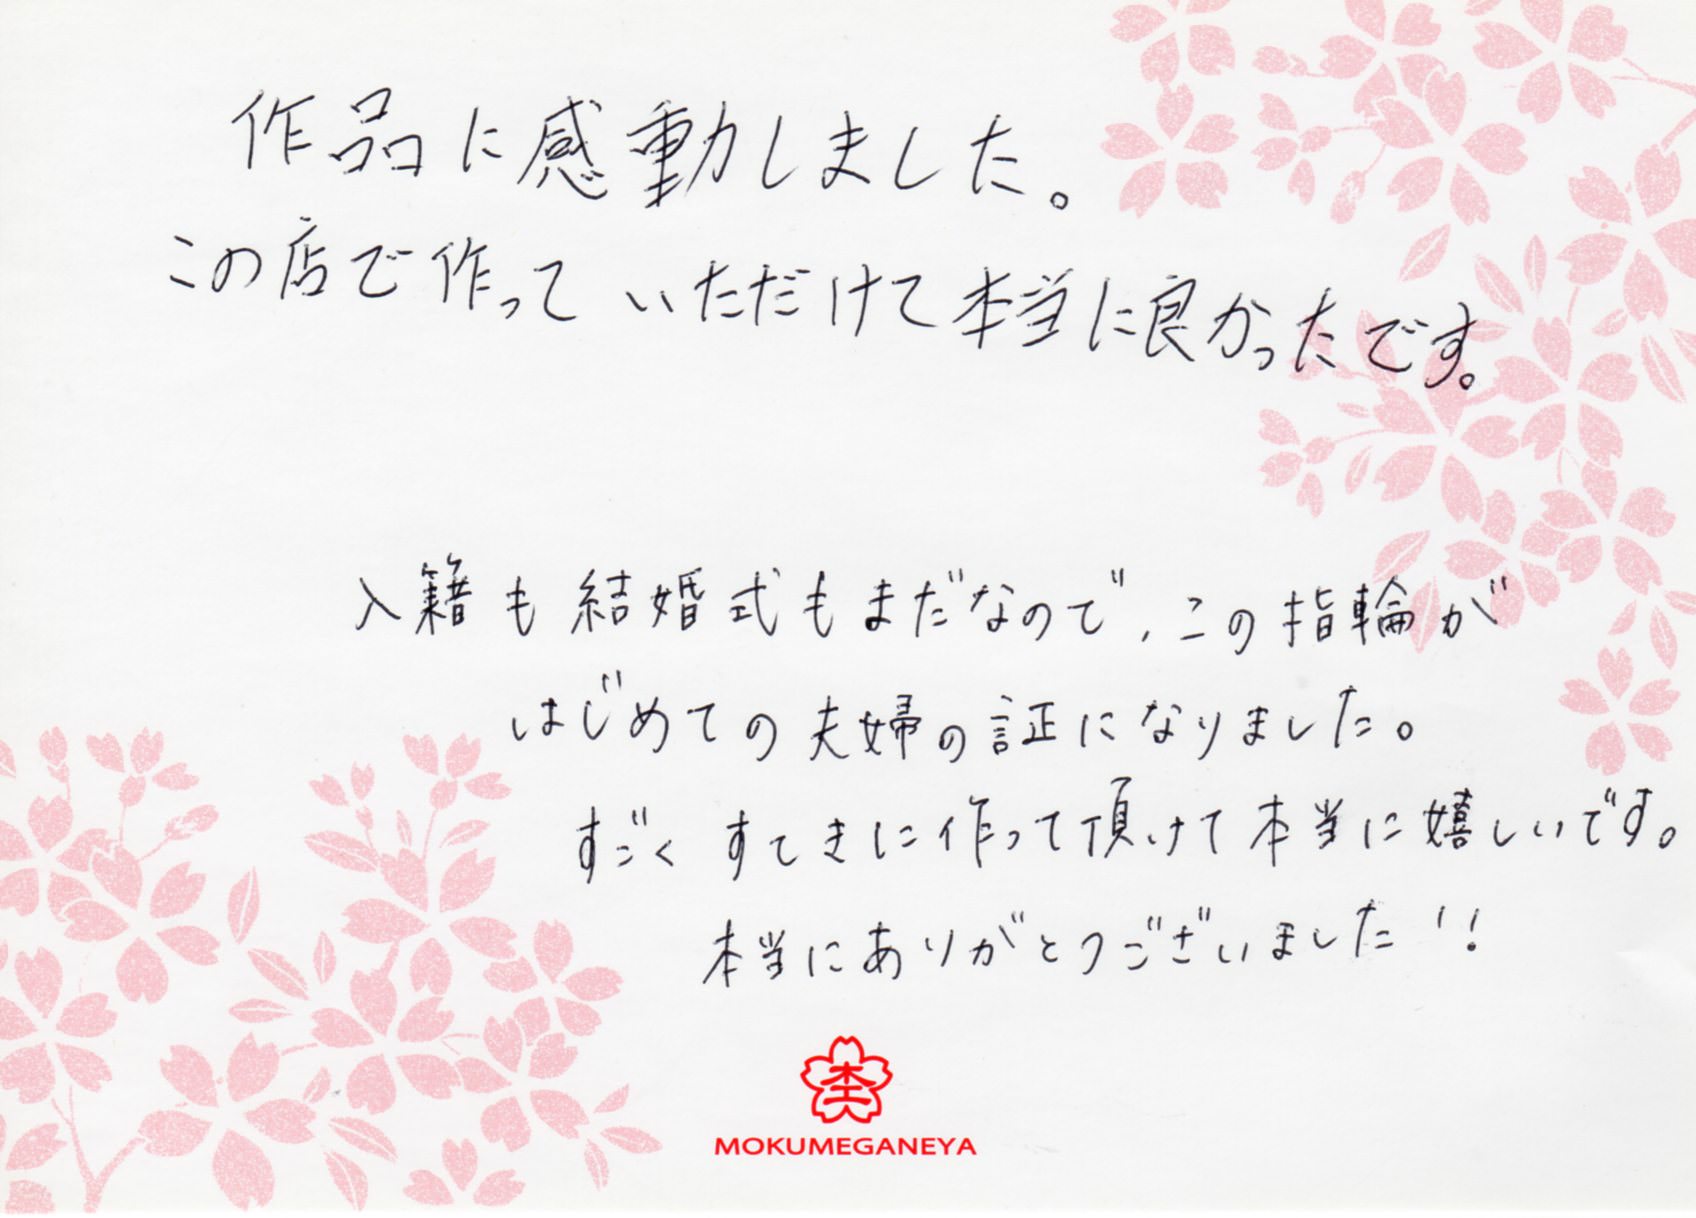 作品に感動しました。
この店で作って いただけて本当に良かったです。
入籍も結婚式もまだなので、この指輪が
はじめての夫婦の証になりました。
すごく すてきに作って頂けて本当に嬉しいです。
本当にありがとうございました!!
杢
MOKUMEGANEYA